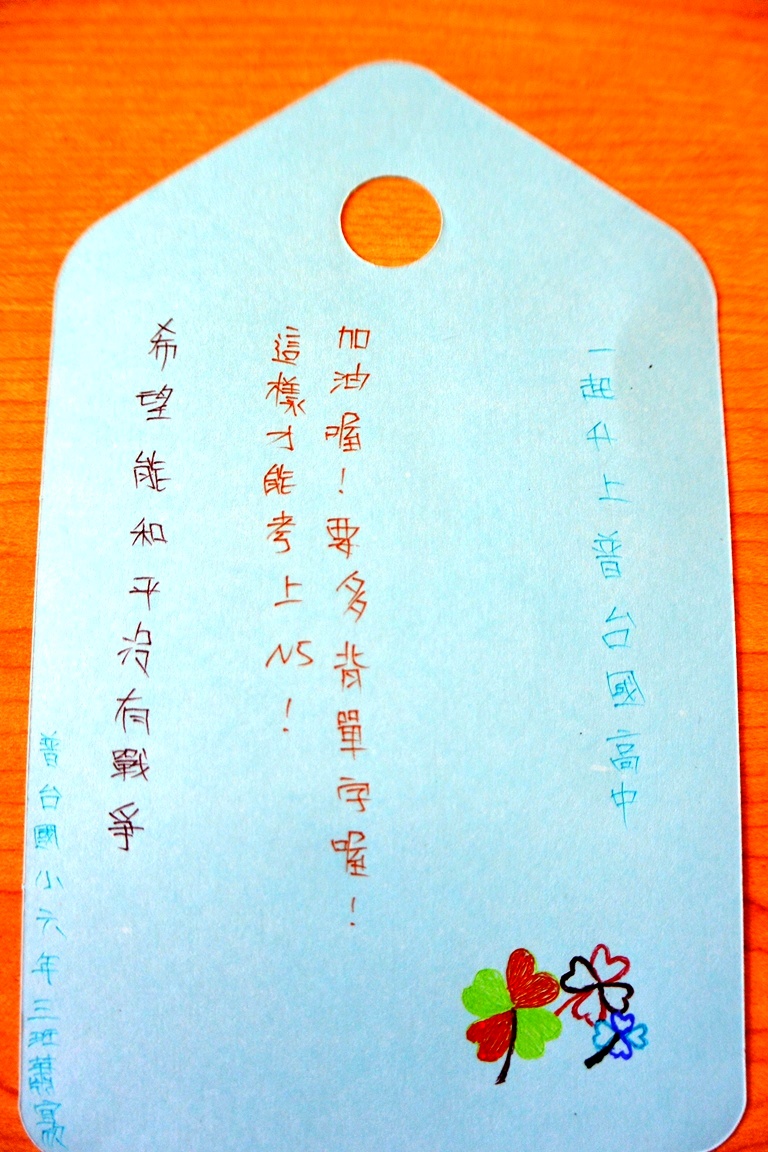 一起升上普台國高中
加油喔！要多背單字喔！
這樣才能考上N5！
希望能和平沒有戰爭
普台國小六年三班蕭宜